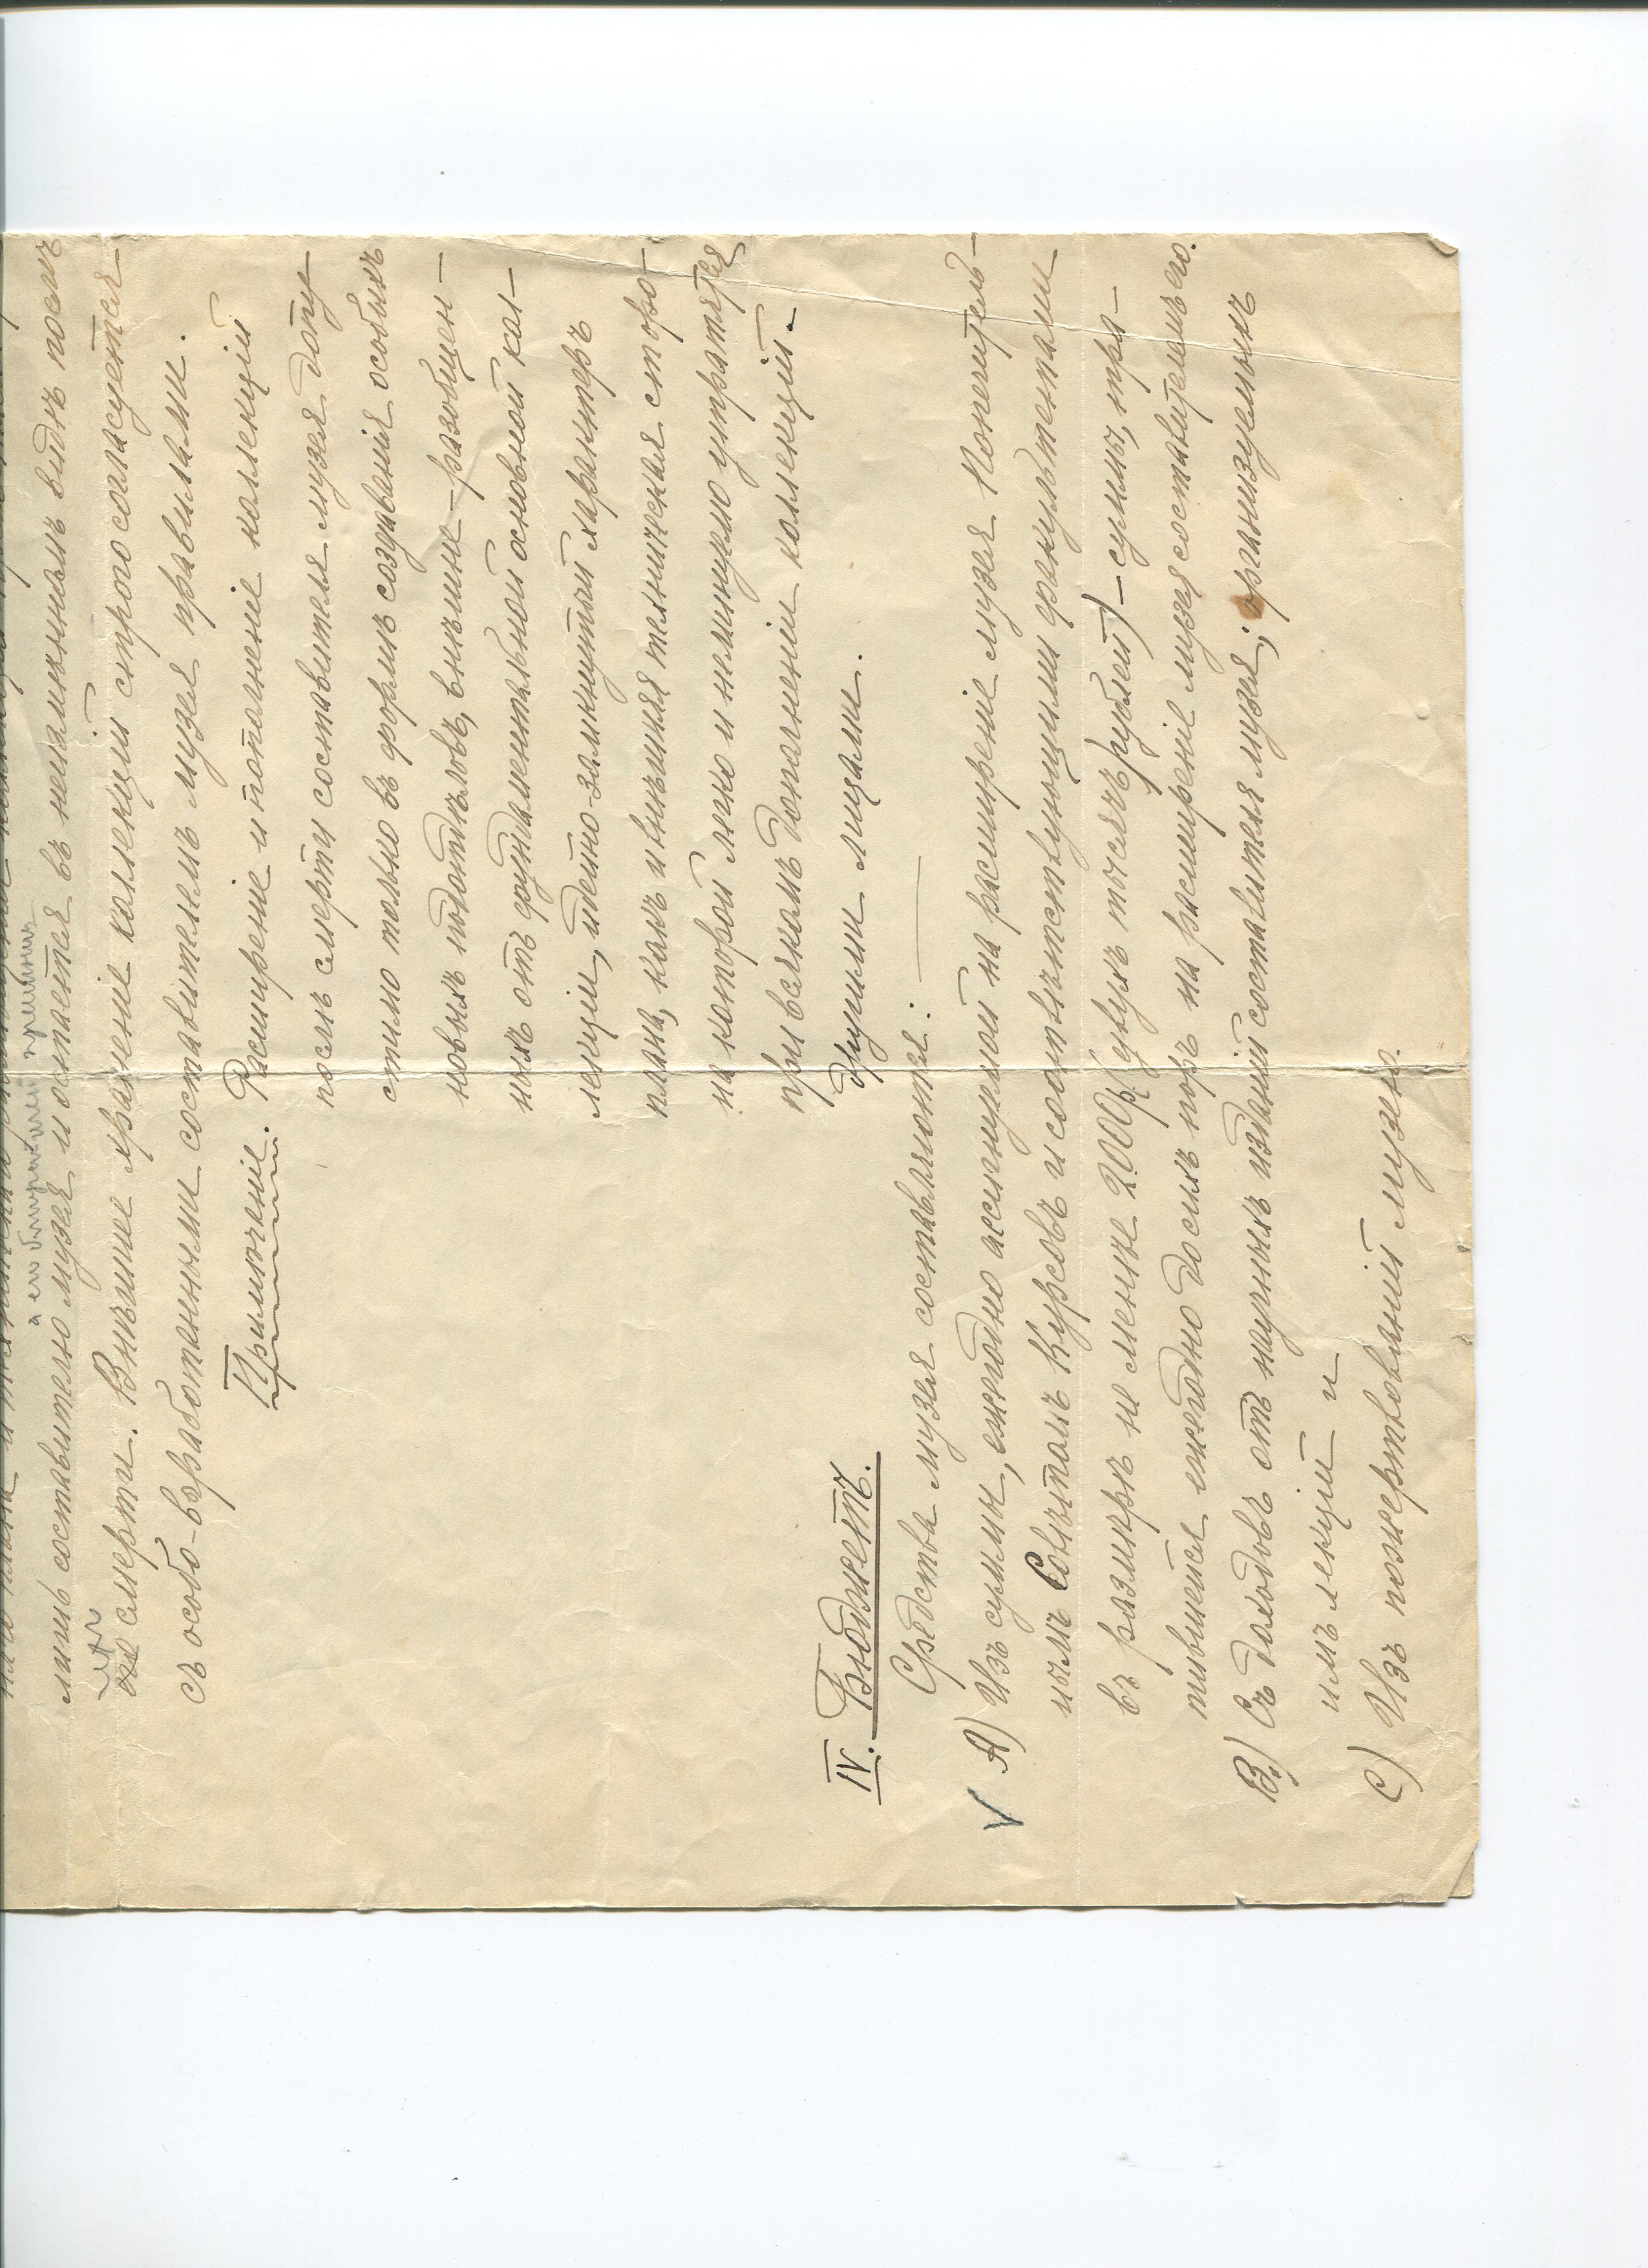 лишь составителю музея и остается въ неизмѣнномъ видѣ послѣ
его смерти. Внѣшнее храненіе коллекціи строго согласуется
съ особо-выработанными составителемъ музея правилами.
Примѣчаніе. Расширеніе и пополненіе коллекцій
послѣ смерти составителя музея допу-
стимо только въ формѣ созиданія особыхъ
новыхъ подотдѣловъ, внѣшне-разобщен-
ныхъ отъ фундаментальной основной кол-
лекціи, идейно-замкнутый характеръ
плана, какъ и внѣшняя техническая сторо-
на которой легко и неминуемо утратятся
при всякомъ дополненіи коллекцій
другими лицами.
IV. Бюджетъ.
Средства музея составляются:
A) Изъ суммы, ежегодно ассигнуемой на расширеніе музея Попечитель-
нымъ Совѣтомъ Курсовъ и соотвѣтствующими факультетами
въ размѣрѣ не менѣе 2000р. (двухъ тысячъ рублей) – суммы, тра-
тившейся ежегодно до сихъ поръ на расширеніе музея составителемъ его.
B) Съ доходовъ отъ научныхъ изданій составителя музея; организуемыхъ
имъ лекцій и
C) Изъ пожертвованій музею.